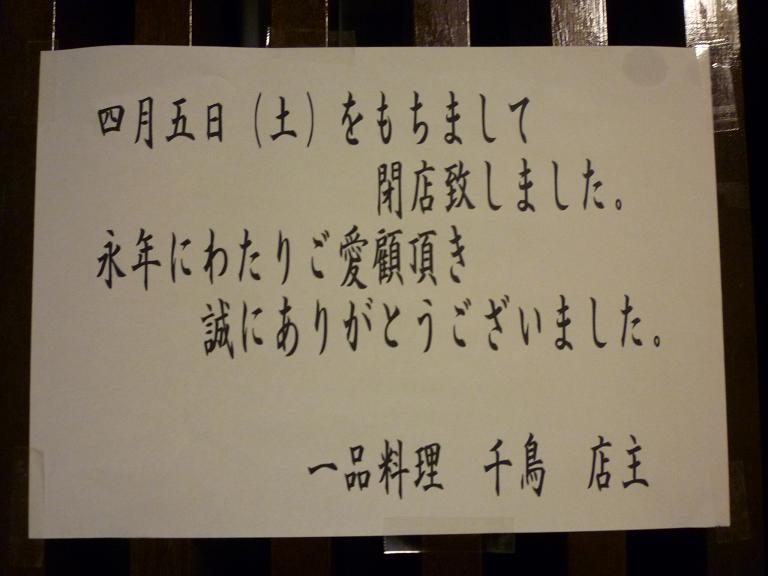 四月五日（土）をもちまして
閉店致しました。
永年にわたりご愛顧頂き
誠にありがとうございました。
一品料理　千鳥　店主